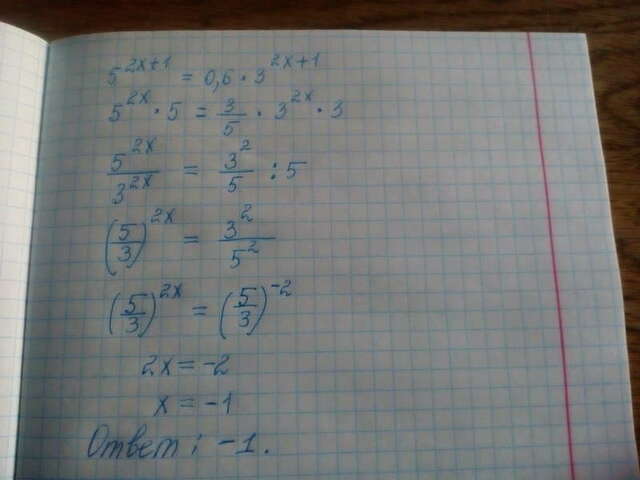 5^{2x+1} = 0,6 · 3^{2x+1}
5^{2x} · 5 = \frac{3}{5} · 3^{2x} · 3
\frac{5^{2x}}{3^{2x}} = \frac{3^2}{5} : 5
(\frac{5}{3})^{2x} = \frac{3^2}{5^2}
(\frac{5}{3})^{2x} = (\frac{5}{3})^{-2}
2x = -2
x = -1
Ответ: -1.